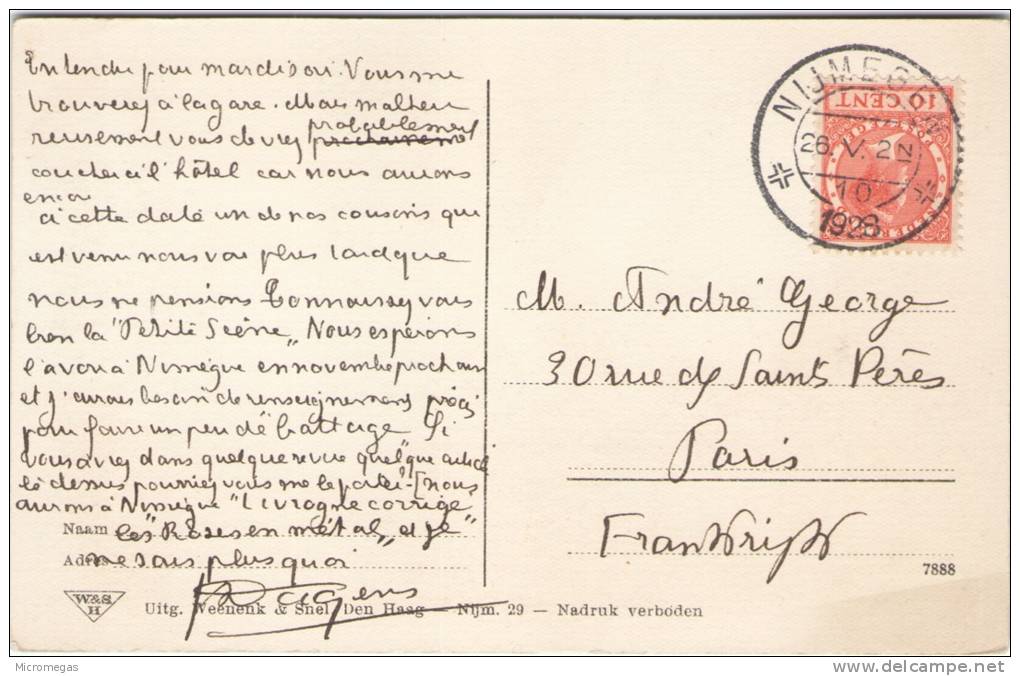 Entendu pour mardi soir. Vous me
trouverez à la gare. Mais malheu
reusement vous devrez probablement
coucher à l'hôtel car nous aurons
encore
à cette date un de nos cousins que
est venu nous voir plus tard que
nous ne pensions Connaissez vous
bien la "Petite Scène„ Nous espérons
l'avoir à Nimègue en novembre prochain
et j'aurais besoin de renseignements précis
pour faire un peu de battage Si
vous avez dans quelque revue quelque article
là dessus pourriez vous me le prêter - [nous
aurons à Nimègue "L'ivrogne corrigé
les "Roses en métal„ et je
ne sais plus quoi
Naam
Adres
W&S.
H
Uitg. Weenenk & Snel, Den Haag — Nijm. 29 — Nadruk verboden
NIJMEGEN
26. V. 2 N
10
1928
10 CENT
M. André George
30 rue des Saints Pères
Paris
Frankrijk
7888
Micromegas
www.delcampe.net